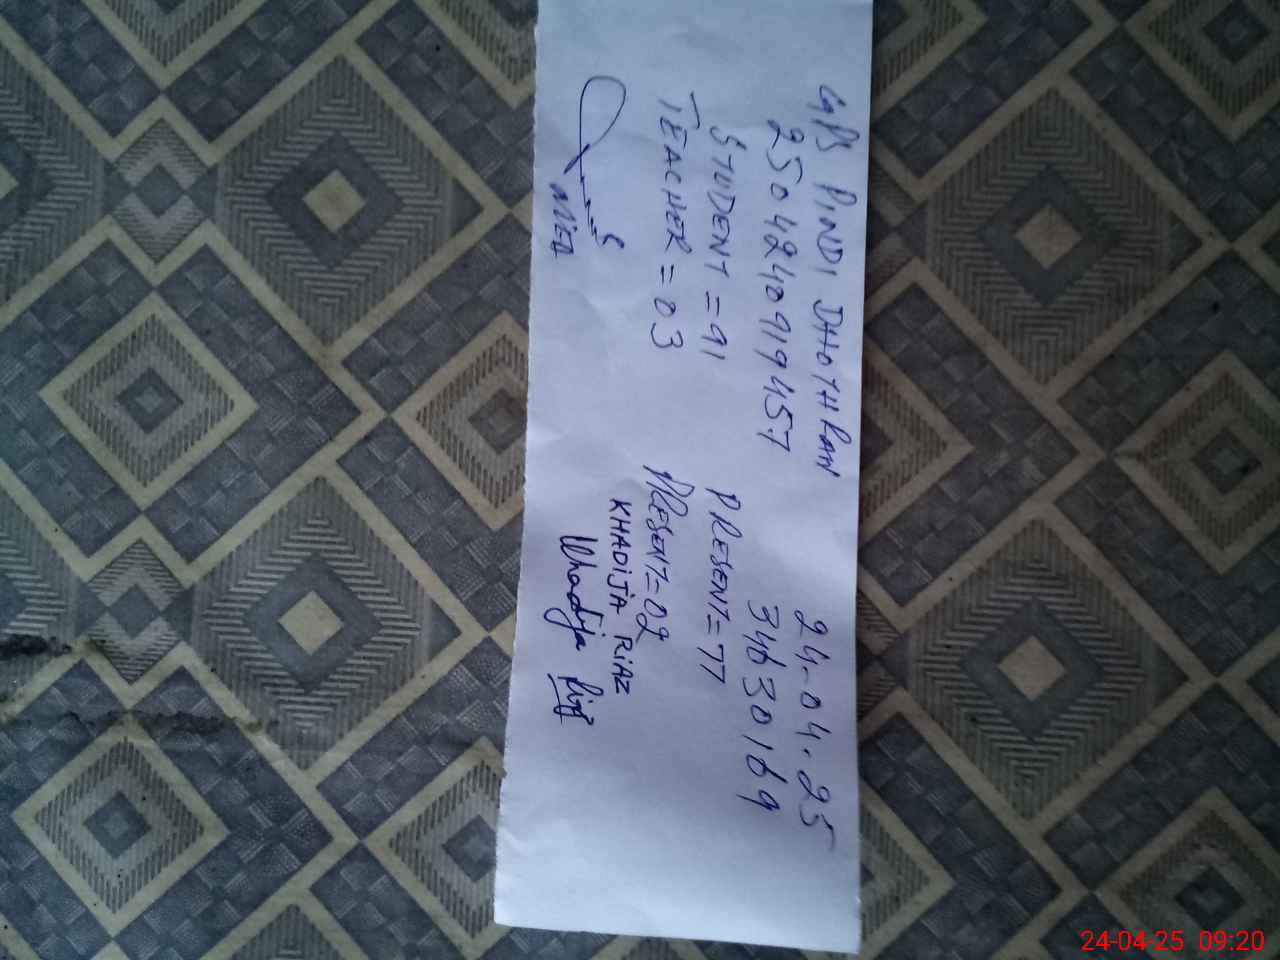 GPS PINDI DHOTHRAN 24.04.25
2504240919457 34630169
STUDENT = 91 PRESENT = 77
TEACHER = 03 PRESENT = 02
KHADIJA RIAZ
Khadija Riaz
24-04-25 09:20